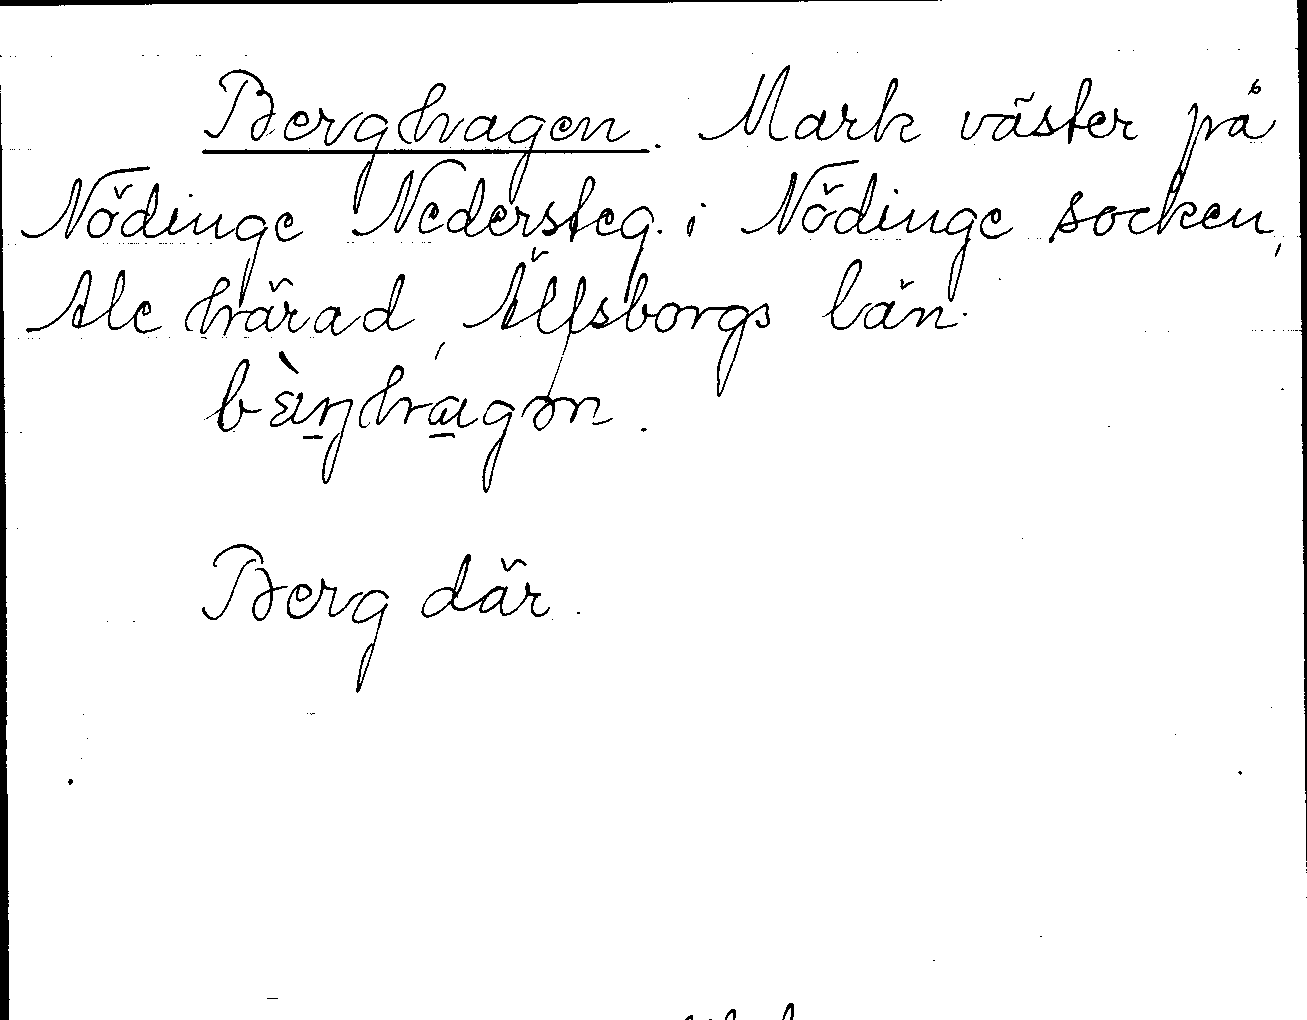 Berghagen. Mark väster på
Nödinge Nedersteg. i Nödinge socken,
Ale härad, Älfsborgs län.
bæ̀ŋhagən.
Berg där.